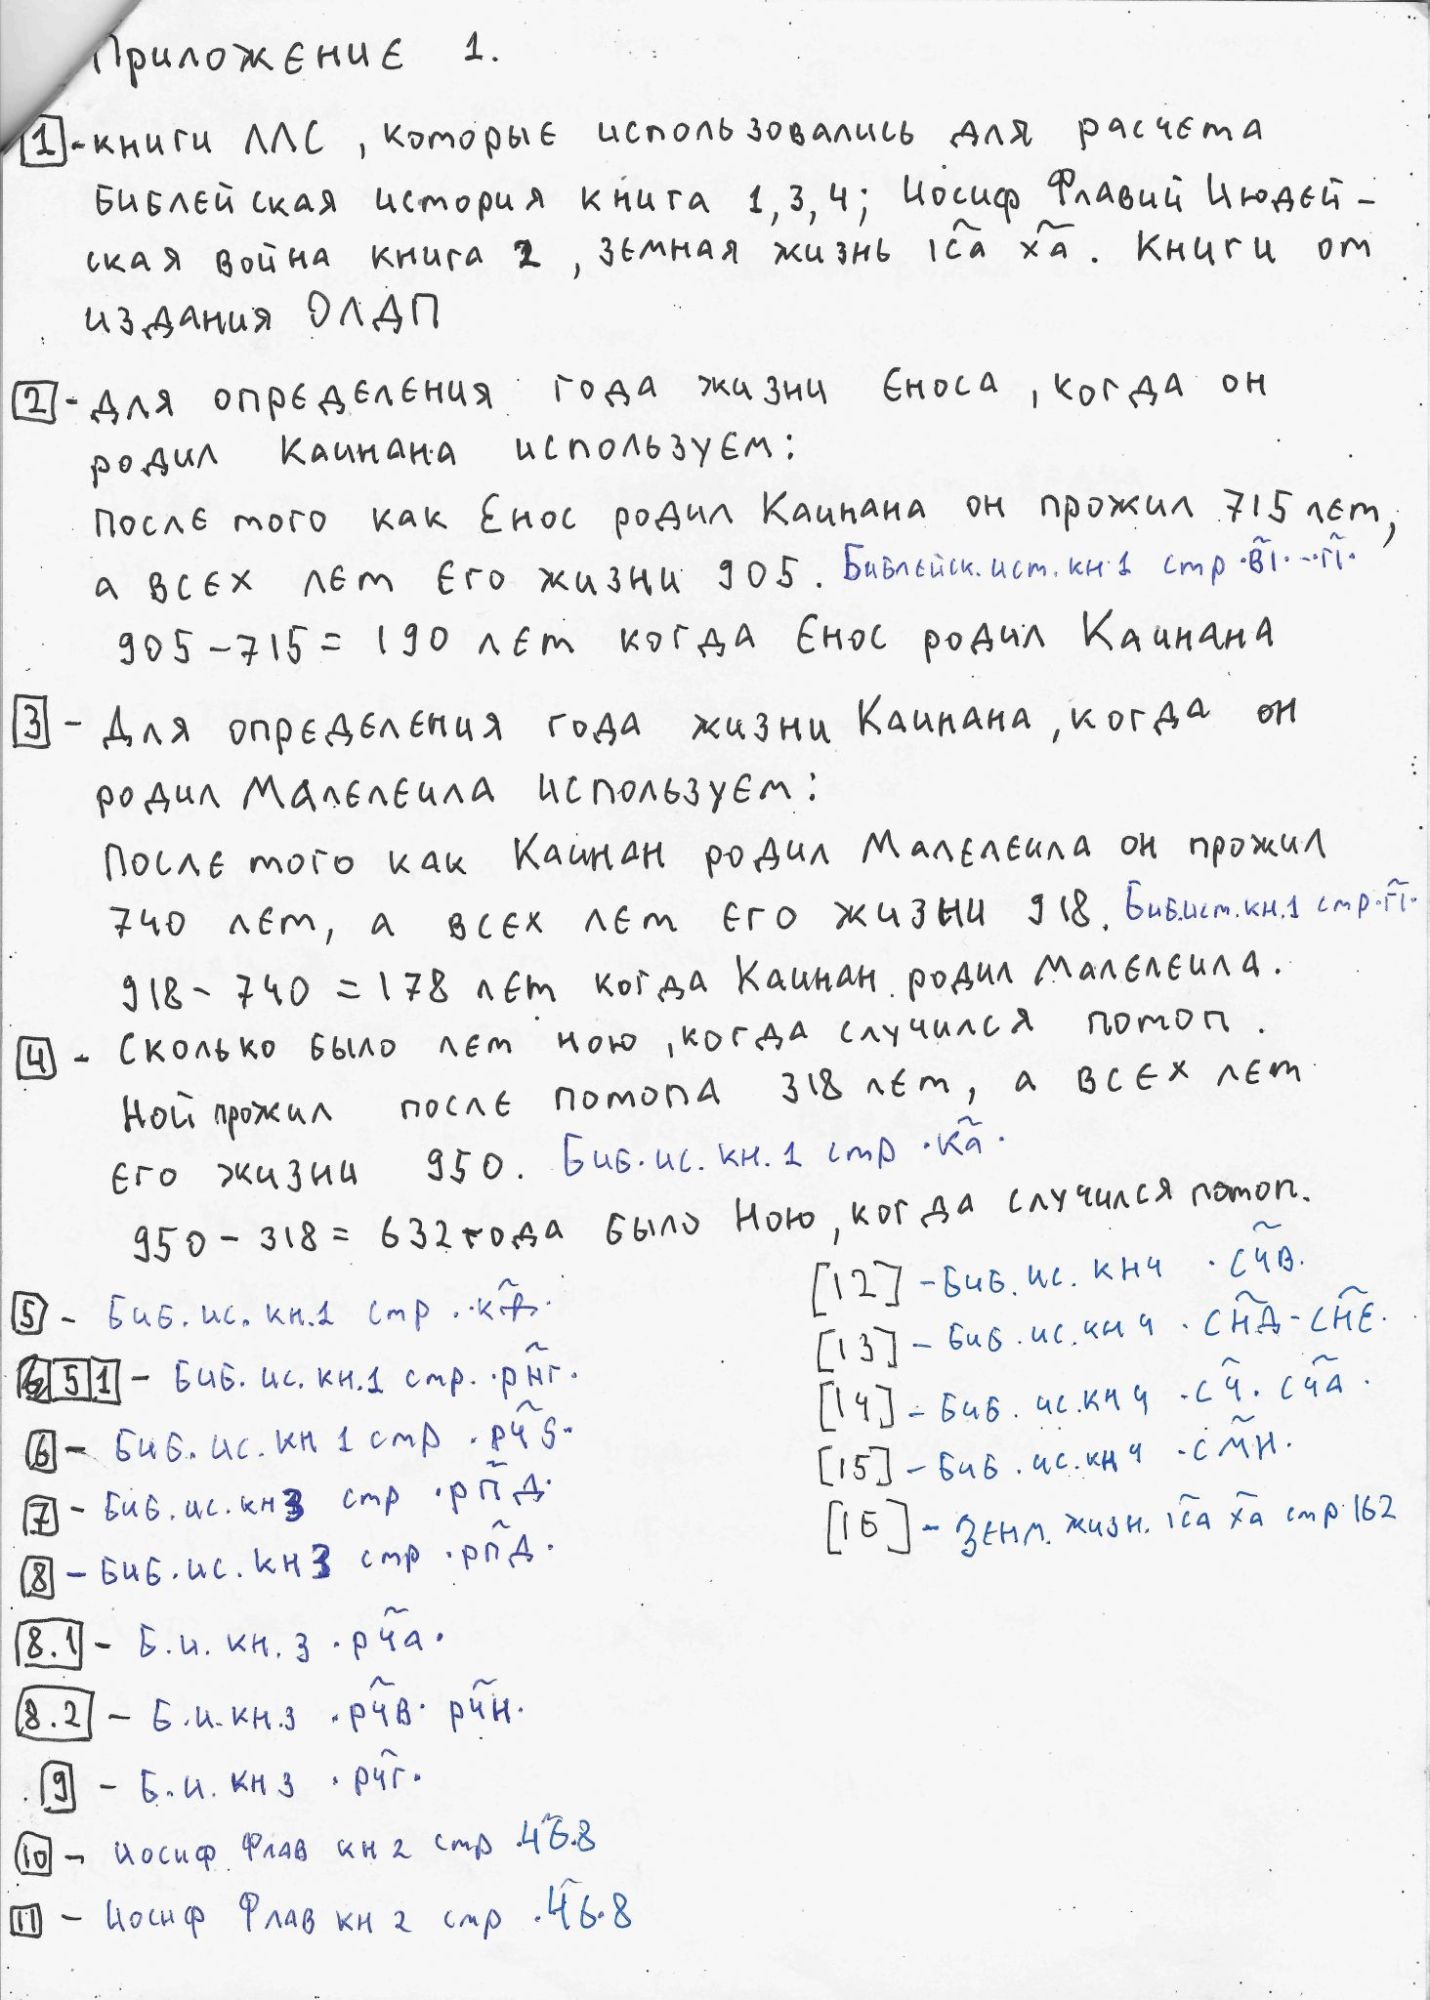 Приложение 1.
1 - книги ЛЛС, которые использовались для расчета
Библейская история книга 1,3,4; Иосиф Флавий Июдей-
ская война книга 2, земная жизнь іс҃а ха҃. Книги от
издания ОЛДП
2 - Для определения года жизни Еноса, когда он
родил Каинана используем:
После того как Енос родил Каинана он прожил 715 лет,
а всех лет его жизни 905. Библейск.ист.кн 1 стр ·в҃і·-·г҃і·
905-715= 190 лет когда Енос родил Каинана
3 - Для определения года жизни Каинана, когда он
родил Малелеила используем:
После того как Каинан родил Малелеила он прожил
740 лет, а всех лет его жизни 918. Биб.ист.кн.1 стр·г҃і·
918-740=178 лет когда Каинан родил Малелеила.
4 - Сколько было лет Ною, когда случился потоп.
Ной прожил после потопа 318 лет, а всех лет
его жизни 950. Биб.ис.кн.1 стр ·ка҃·
950-318= 632 года было Ною, когда случился потоп.
5 - Биб.ис.кн.1 стр
51 - Биб.ис.кн.1 стр. ·рн҃г·
6 - Биб.ис.кн 1 стр ·рч҃ѕ·
7 - Биб.ис.кн 3 стр ·рп҃д·
8 - Биб.ис.кн 3 стр ·рп҃д·
8.1 - Б.и.кн.3 ·рч҃а·
8.2 - Б.и.кн.3 ·рч҃в· рч҃н·
9 - Б.и.кн 3 ·рч҃г·
10 - Иосиф Флав кн 2 стр
11 - Иосиф Флав кн 2 стр
[12] - Биб.ис.кн 4 ·сч҃в·
[13] - Биб.ис.кн 4 ·сн҃д-сн҃е·
[14] - Биб.ис.кн 4 ·сч҃· сч҃а·
[15] - Биб.ис.кн 4 ·см҃н·
[16] - Зенм. жизн. іс҃а ха҃ стр 162